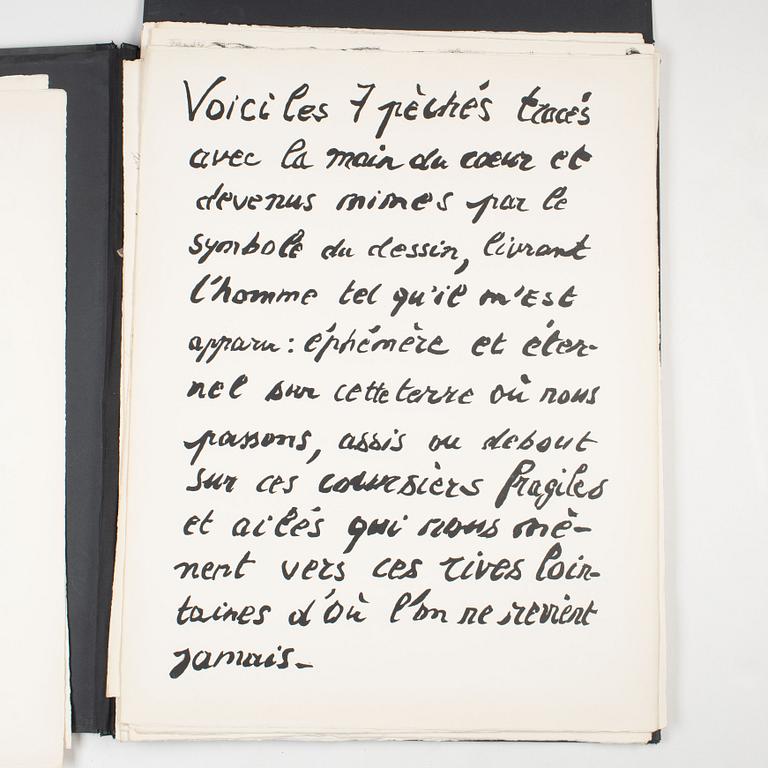 Voici les 7 pèchés tracés
avec la main du cœur et
devenus mimes par le
symbole du dessin, livrant
l'homme tel qu'il m'est
apparu : éphémère et éter-
nel sur cette terre où nous
passons, assis ou debout
sur ces coursiers fragiles
et ailés qui nous mè-
nent vers ces rives loin-
taines d'où l'on ne revient
jamais.